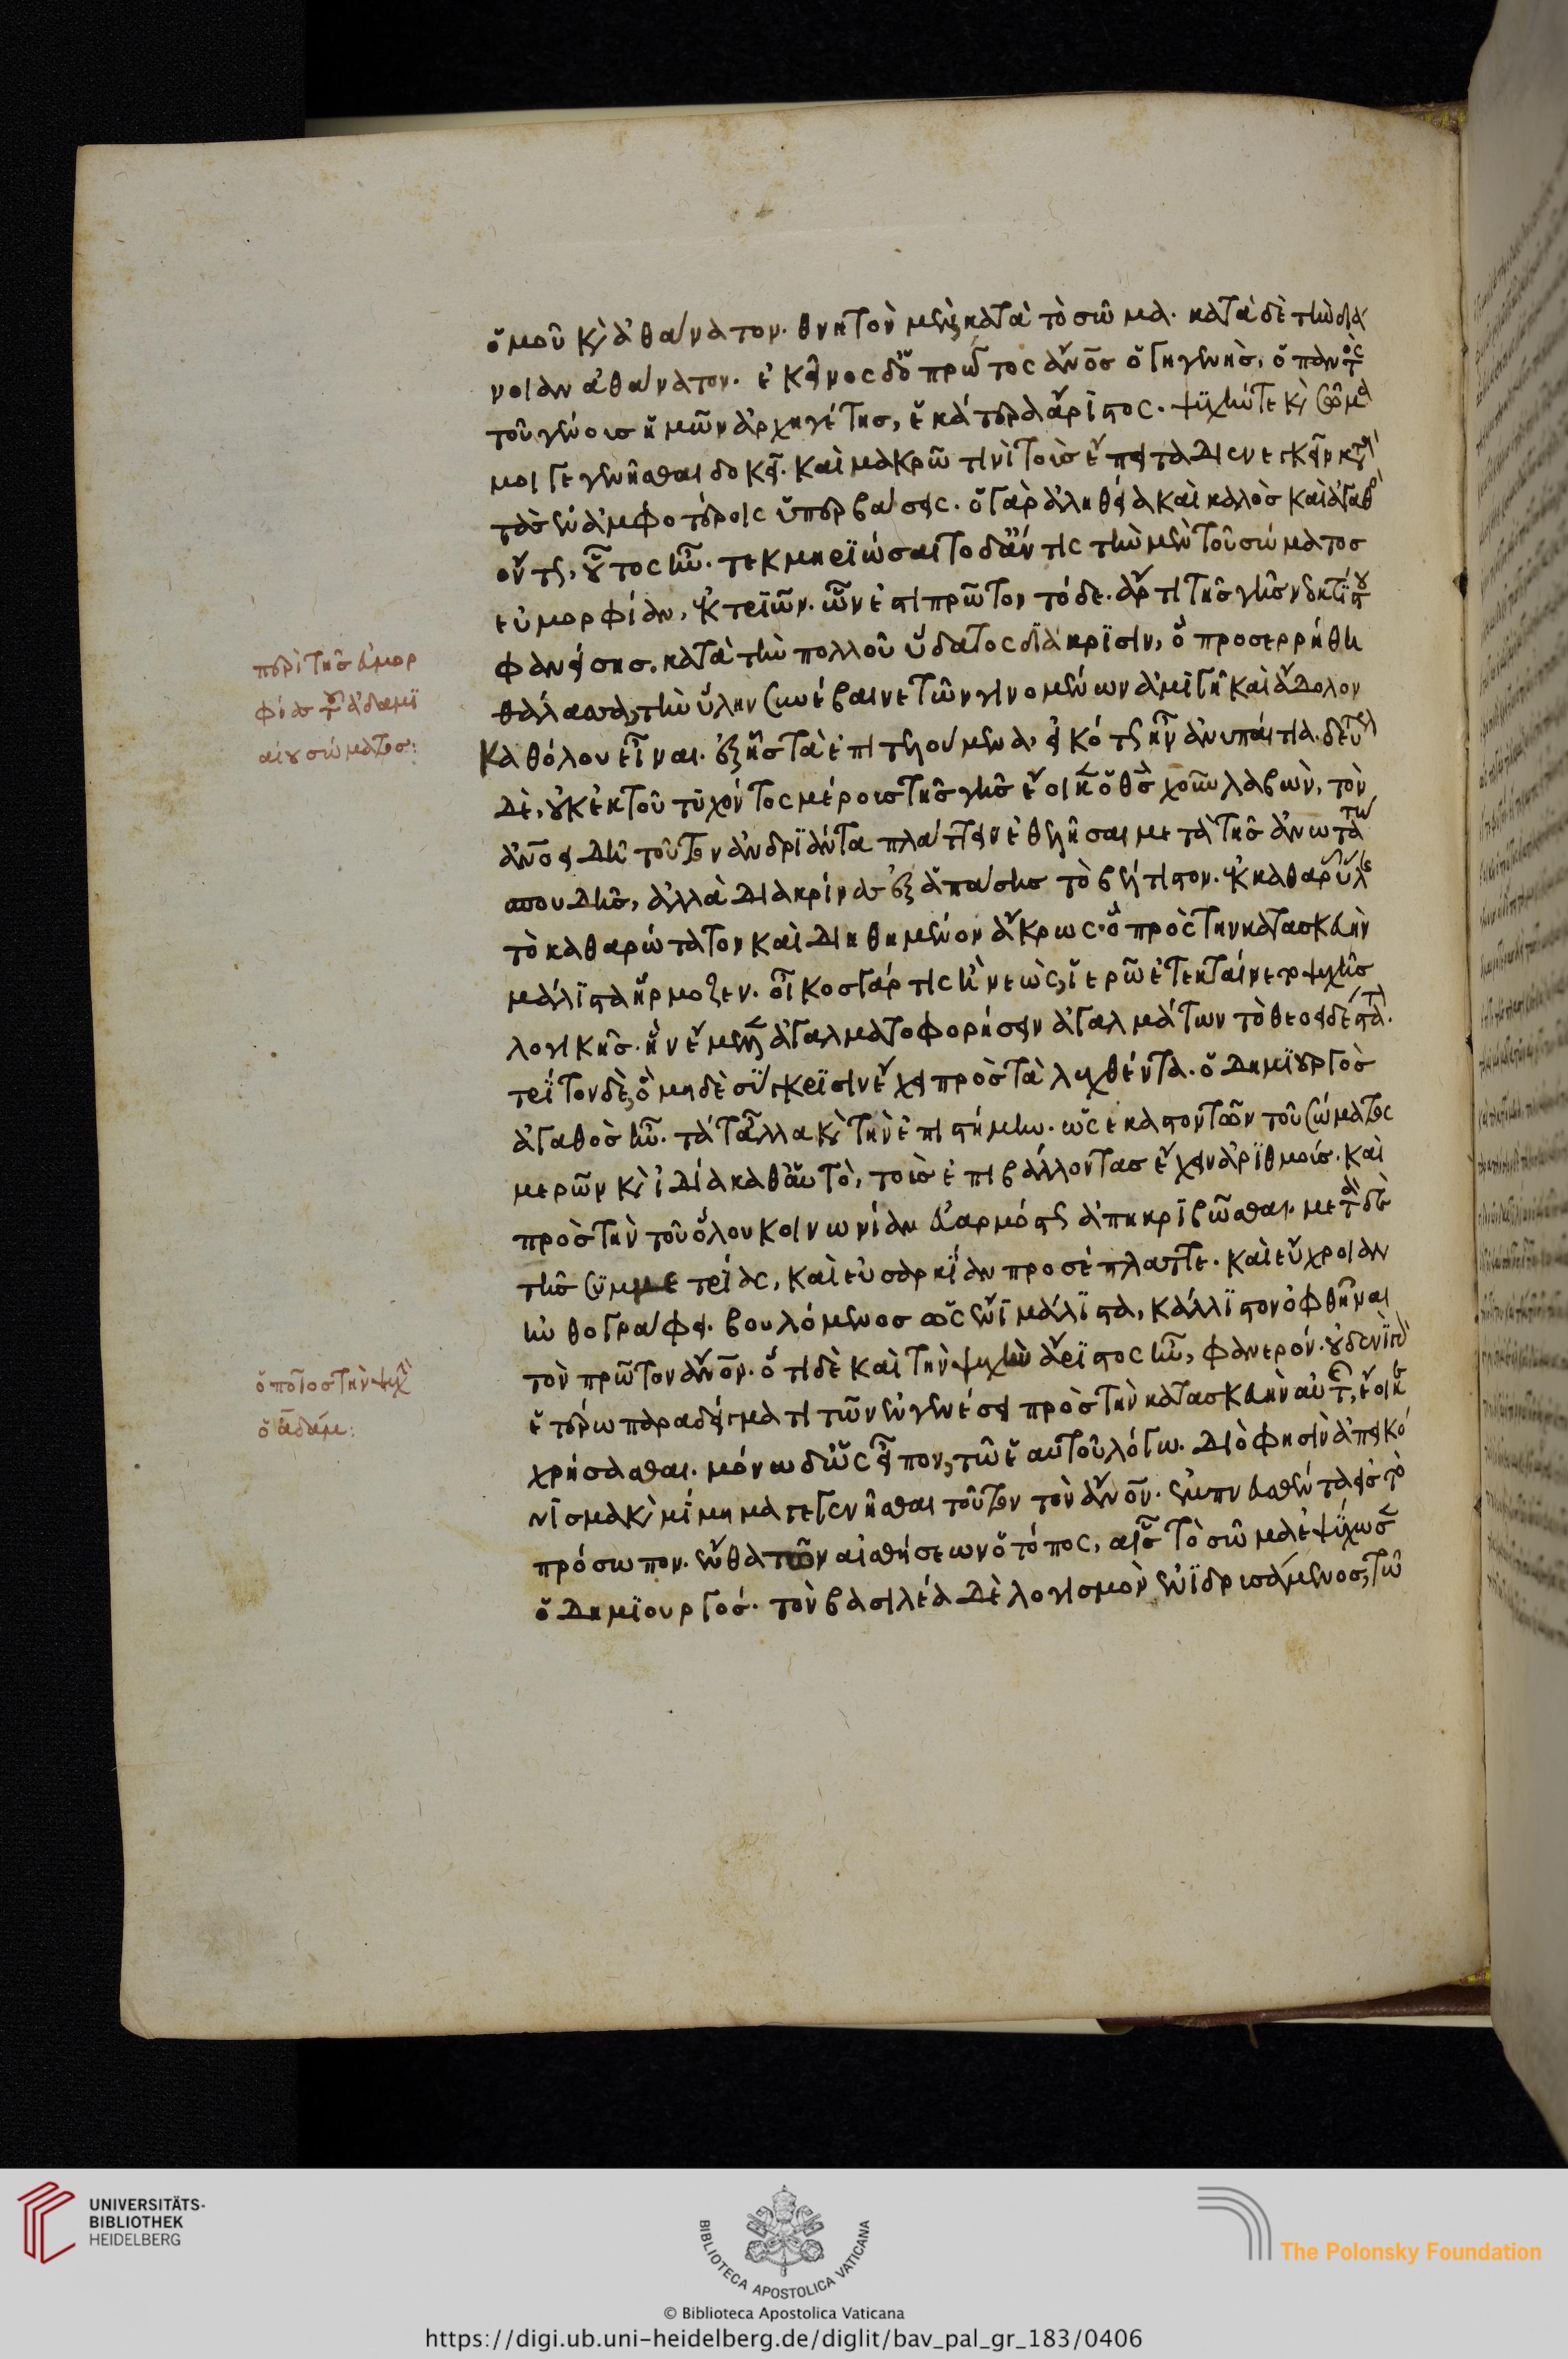 ὁμοῦ κ(αὶ) ἀθάνατον. θνητὸν μὲν, κατὰ τὸ σῶμα. κατὰ δὲ τὴν διά
νοιαν ἀθάνατον. ἐκεῖνος δ' ὁ πρῶτος ἄν̅ο̅ς ὁ γηγενὴς, ὁ παντὸς
τοῦ γένους ἡμῶν ἀρχηγέτης, ἑκάτερα ἄριστος. ψυχήν τε κ(αὶ) σῶμά
μοι γεγενῆσθαι δοκεῖ. καὶ μακρῶ τινὶ τοὺς ἔπειτα διενεγκεῖν κατὰ
τὰς ἐν ἀμφοτέροις ὑπερβάσεις. ὁ γὰρ ἀληθεία καὶ καλὸς καὶ ἀγαθὸ
ὄντως, οὗτος ἦν. τεκμηριώσαιτο δ' ἄν τις τὴν μὲν τοῦ σώματος
εὐμορφίαν, ἐκ τριῶν. ὧν ἐστι πρῶτον τόδε. ἄρτι τῆς γῆς νεοκτίστου
φανείσης, κατὰ τὴν πολλοῦ ὕδατος διάκρισιν, ὃ προσερρήθη
θάλασσα, τὴν ὕλην συνέβαινε τῶν γινομένων ἀμιγῆ καὶ ἄδολον
καθόλου εἶναι. ἐξ ἧς τὰ ἐπιτελούμενα, εἰκότως ἦν ἀνυπαίτια. δεύτερον
δὲ, οὐκ ἐκ τοῦ τυχόντος μέρους τῆς γῆς ἔοικεν ὁ θ̅ς̅ χοῦν λαβὼν, τὸν
ἀν̅ο̅ειδῆ τοῦτον ἀνδριάντα πλάττειν ἐθελῆσαι μετὰ τῆς ἀνωτάτω
σπουδῆς, ἀλλὰ διακρίνας ἐξ ἁπάσης τὸ βέλτιστον. ἐκ καθαρᾶς ὕλης
τὸ καθαρώτατον καὶ διηθημένον ἄκρως. ὃ πρὸς τὴν κατασκευὴν
μάλιστα ἥρμοζεν. οἶκος γάρ τις ἢ νεὼς, ἱερὸς ἐτεκταίνετο ψυχῆς
λογικῆς. ἣν ἔμελλεν ἀγαλματοφορήσειν ἀγαλμάτων τὸ θεοειδέστατον.
τρίτον δὲ, ὃ μηδὲ σύγκρισιν ἔχει πρὸς τὰ λεχθέντα. ὁ δημιουργὸς
ἀγαθὸς ἦν. τά τἆλλα κ(αὶ) τὴν ἐπιστήμην. ὡς ἕκαστον τῶν τοῦ σώματος
μερῶν κ(αὶ) ἰδία καθ' αὑτὸ, τοὺς ἐπιβάλλοντας ἔχειν ἀριθμούς. καὶ
πρὸς τὴν τοῦ ὅλου κοινωνίαν εὐαρμόστως ἀπηκριβῶσθαι. μετὰ δὲ
τῆς συμμετρίας, καὶ εὐσαρκίαν προσέπλαττε. καὶ εὔχροιαν
ἠνθογράφει. βουλόμενος ὡς ἔνι μάλιστα, κάλλιστον ὀφθῆναι
τὸν πρῶτον ἄν̅ο̅ν. ὅτι δὲ καὶ τὴν ψυχὴν ἄριστος ἦν, φανερόν. οὐδενὶ γὰρ
ἑτέρω παραδείγματι τῶν ἐν γενέσει πρὸς τὴν κατασκευὴν αὐτῆς, ἔοικε
χρήσασθαι. μόνω δ' ὡς εἶπον, τῶ ἑαυτοῦ λόγω. διό φησιν ἀπεικό
νισμα κ(αὶ) μίμημα γεγενῆσθαι τοῦτον τὸν ἄν̅ο̅ν. ἐμπνευσθέντα εἰς τὸ
πρόσωπον. ἔνθα τῶν αἰσθήσεων ὁ τόπος, αἷς τὸ σῶμα ἐψύχωσεν
ὁ δημιουργός. τὸν βασιλέα δὲ λογισμὸν ἐνιδρυσάμενος, τῶ
περὶ τῆς εὐμορ
φίας τοῦ ἀδαμι
αίου σώματος:
ὁποῖος τὴν ψυχὴ
ὁ ἀδάμ:
UNIVERSITÄTS-
BIBLIOTHEK
HEIDELBERG
BIBLIOTECA APOSTOLICA VATICANA
The Polonsky Foundation
© Biblioteca Apostolica Vaticana
https://digi.ub.uni-heidelberg.de/diglit/bav_pal_gr_183/0406